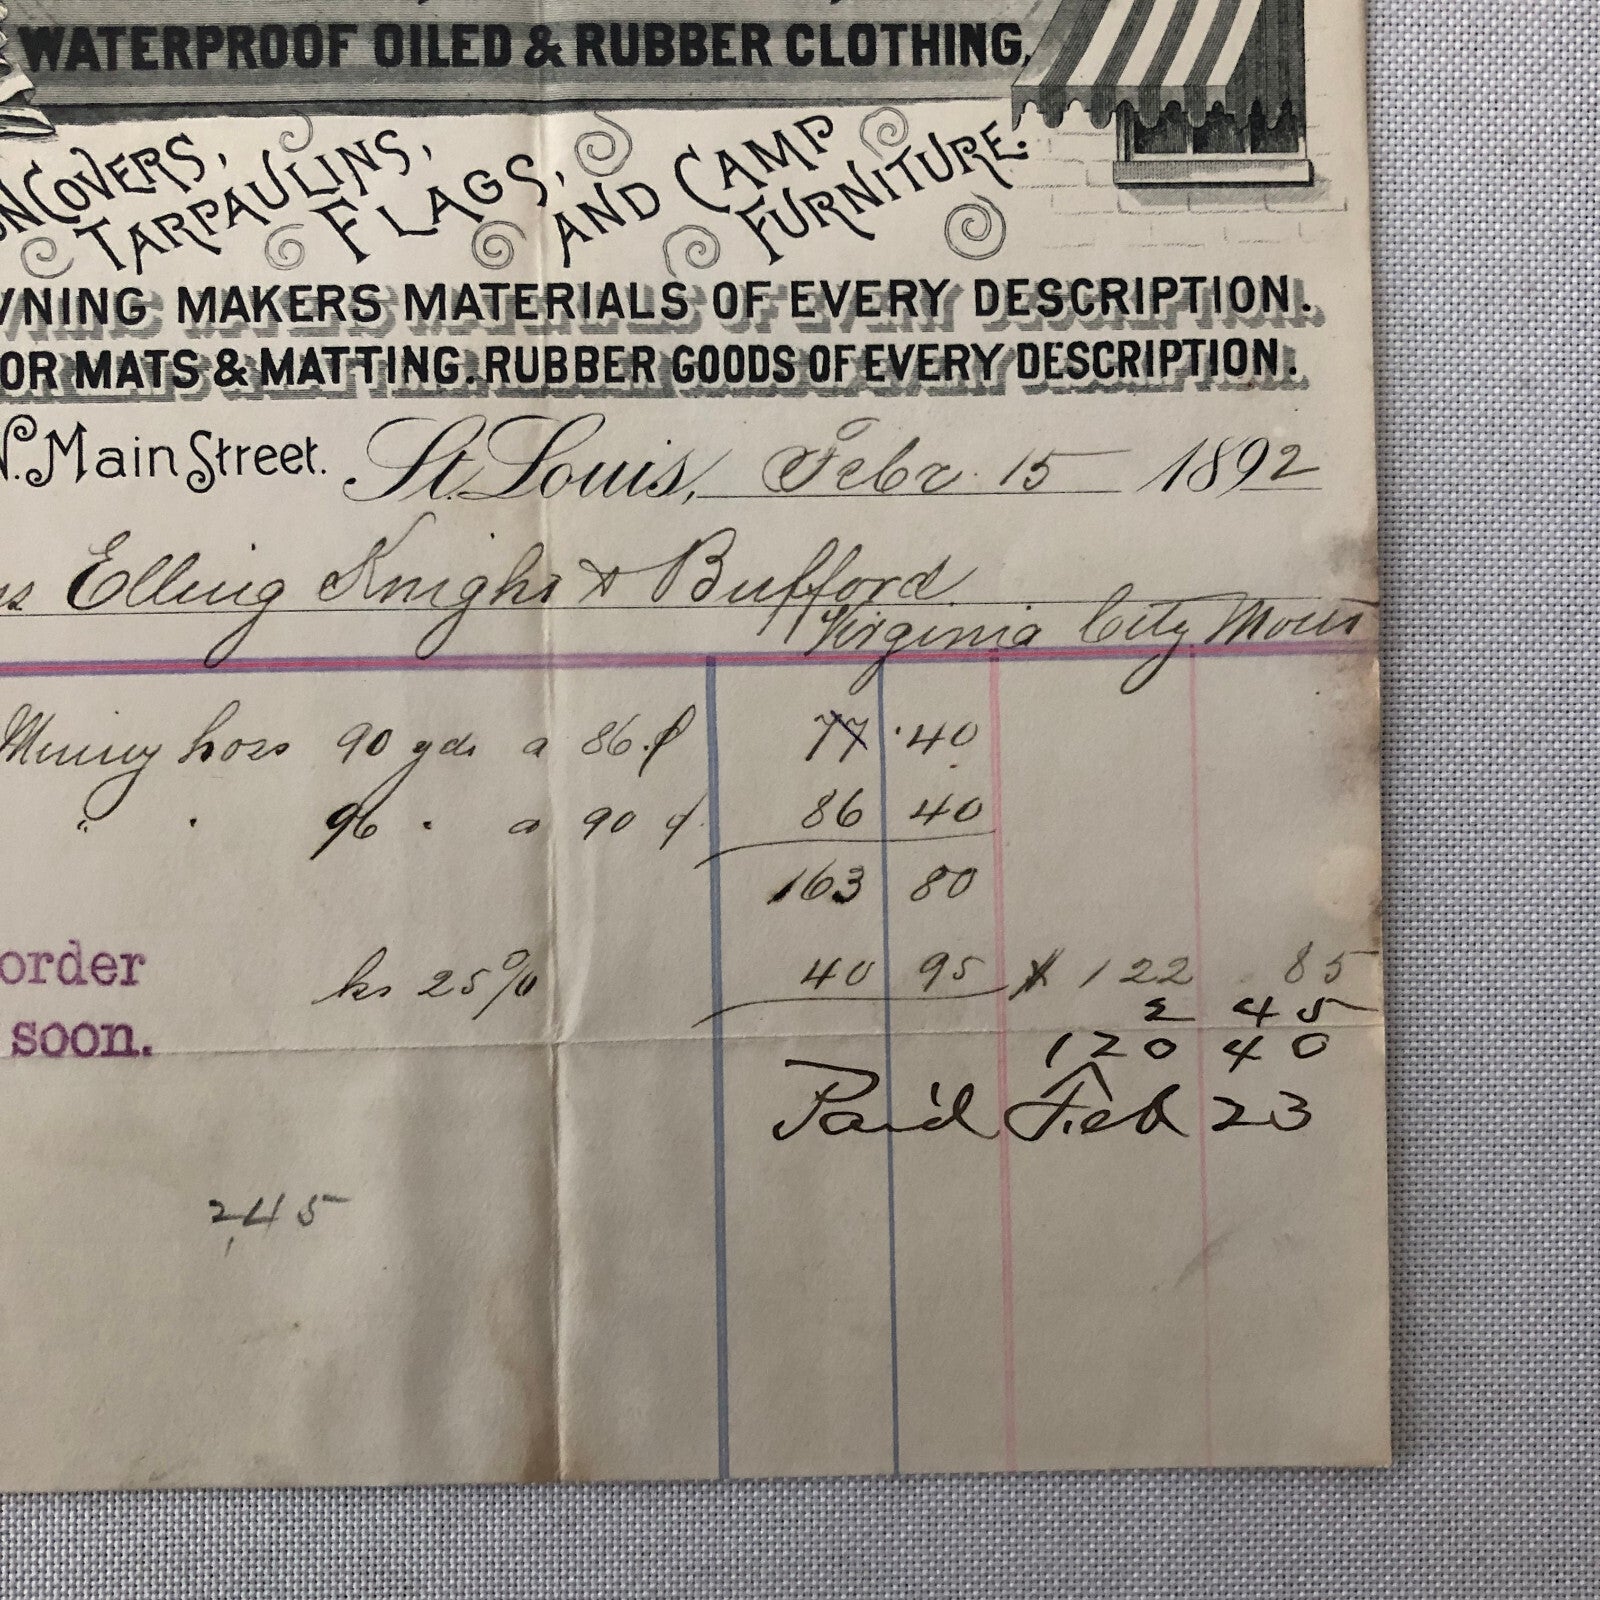 WATERPROOF OILED & RUBBER CLOTHING,
COVERS,
TARPAULINS,
FLAGS,
AND CAMP
FURNITURE.
NING MAKERS MATERIALS OF EVERY DESCRIPTION.
OR MATS & MATTING. RUBBER GOODS OF EVERY DESCRIPTION.
N. Main Street. St. Louis, Febr. 15 1892
Elling Knight & Bufford
Virginia City Mont
Mining hose 90 yds a 86 ¢ 77.40
" . 96 " a 90 ¢ 86 40
163 80
order
ks 25% 40 95 $ 122.85
soon.
2 45
120 40
Paid Feb 23
2,45